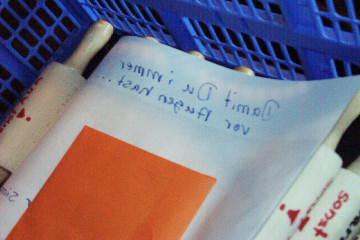 Damit Du immer
vor Augen hast...
sonst